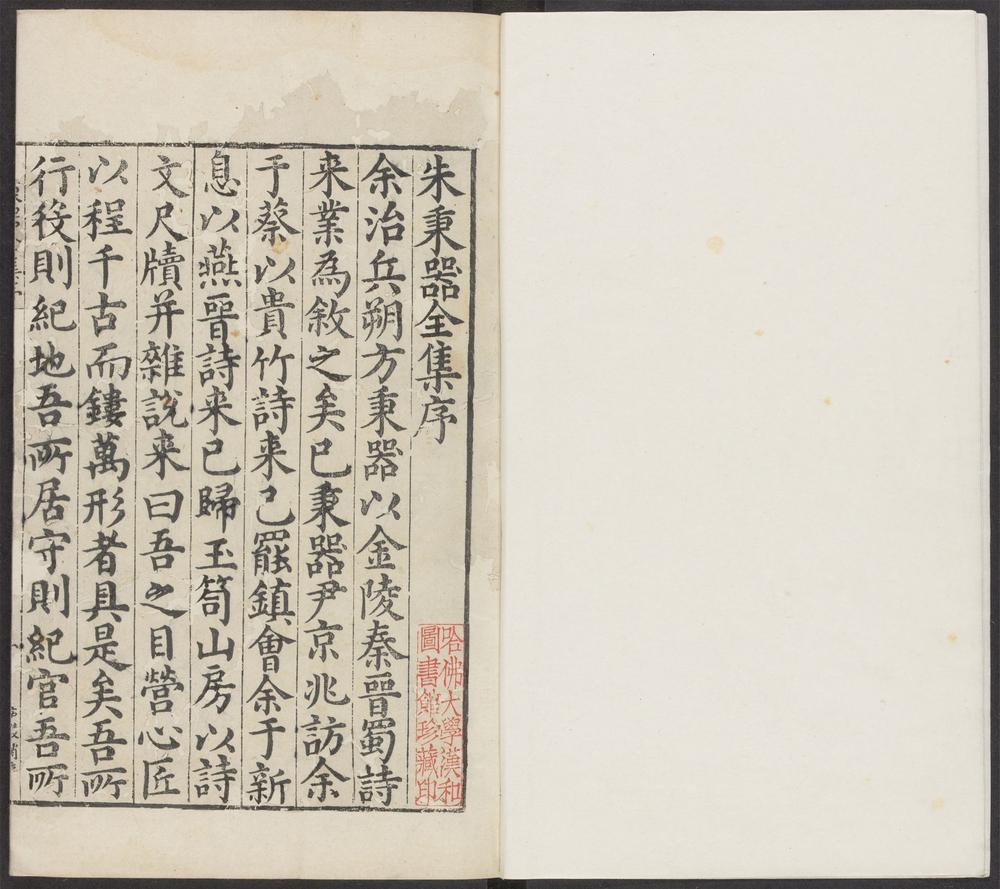 朱秉器全集序
余治兵朔方秉器以金陵秦晉蜀詩
来業為敘之矣已秉器尹京兆訪余
于蔡以貴竹詩来已罷鎮會余于新
息以燕晉詩来已歸玉笥山房以詩
文尺牘并雜説来曰吾之目營心匠
以程千古而鏤萬形者具是矣吾所
行役則紀地吾所居守則紀官吾所
哈佛大學漢和
圖書館珍藏印